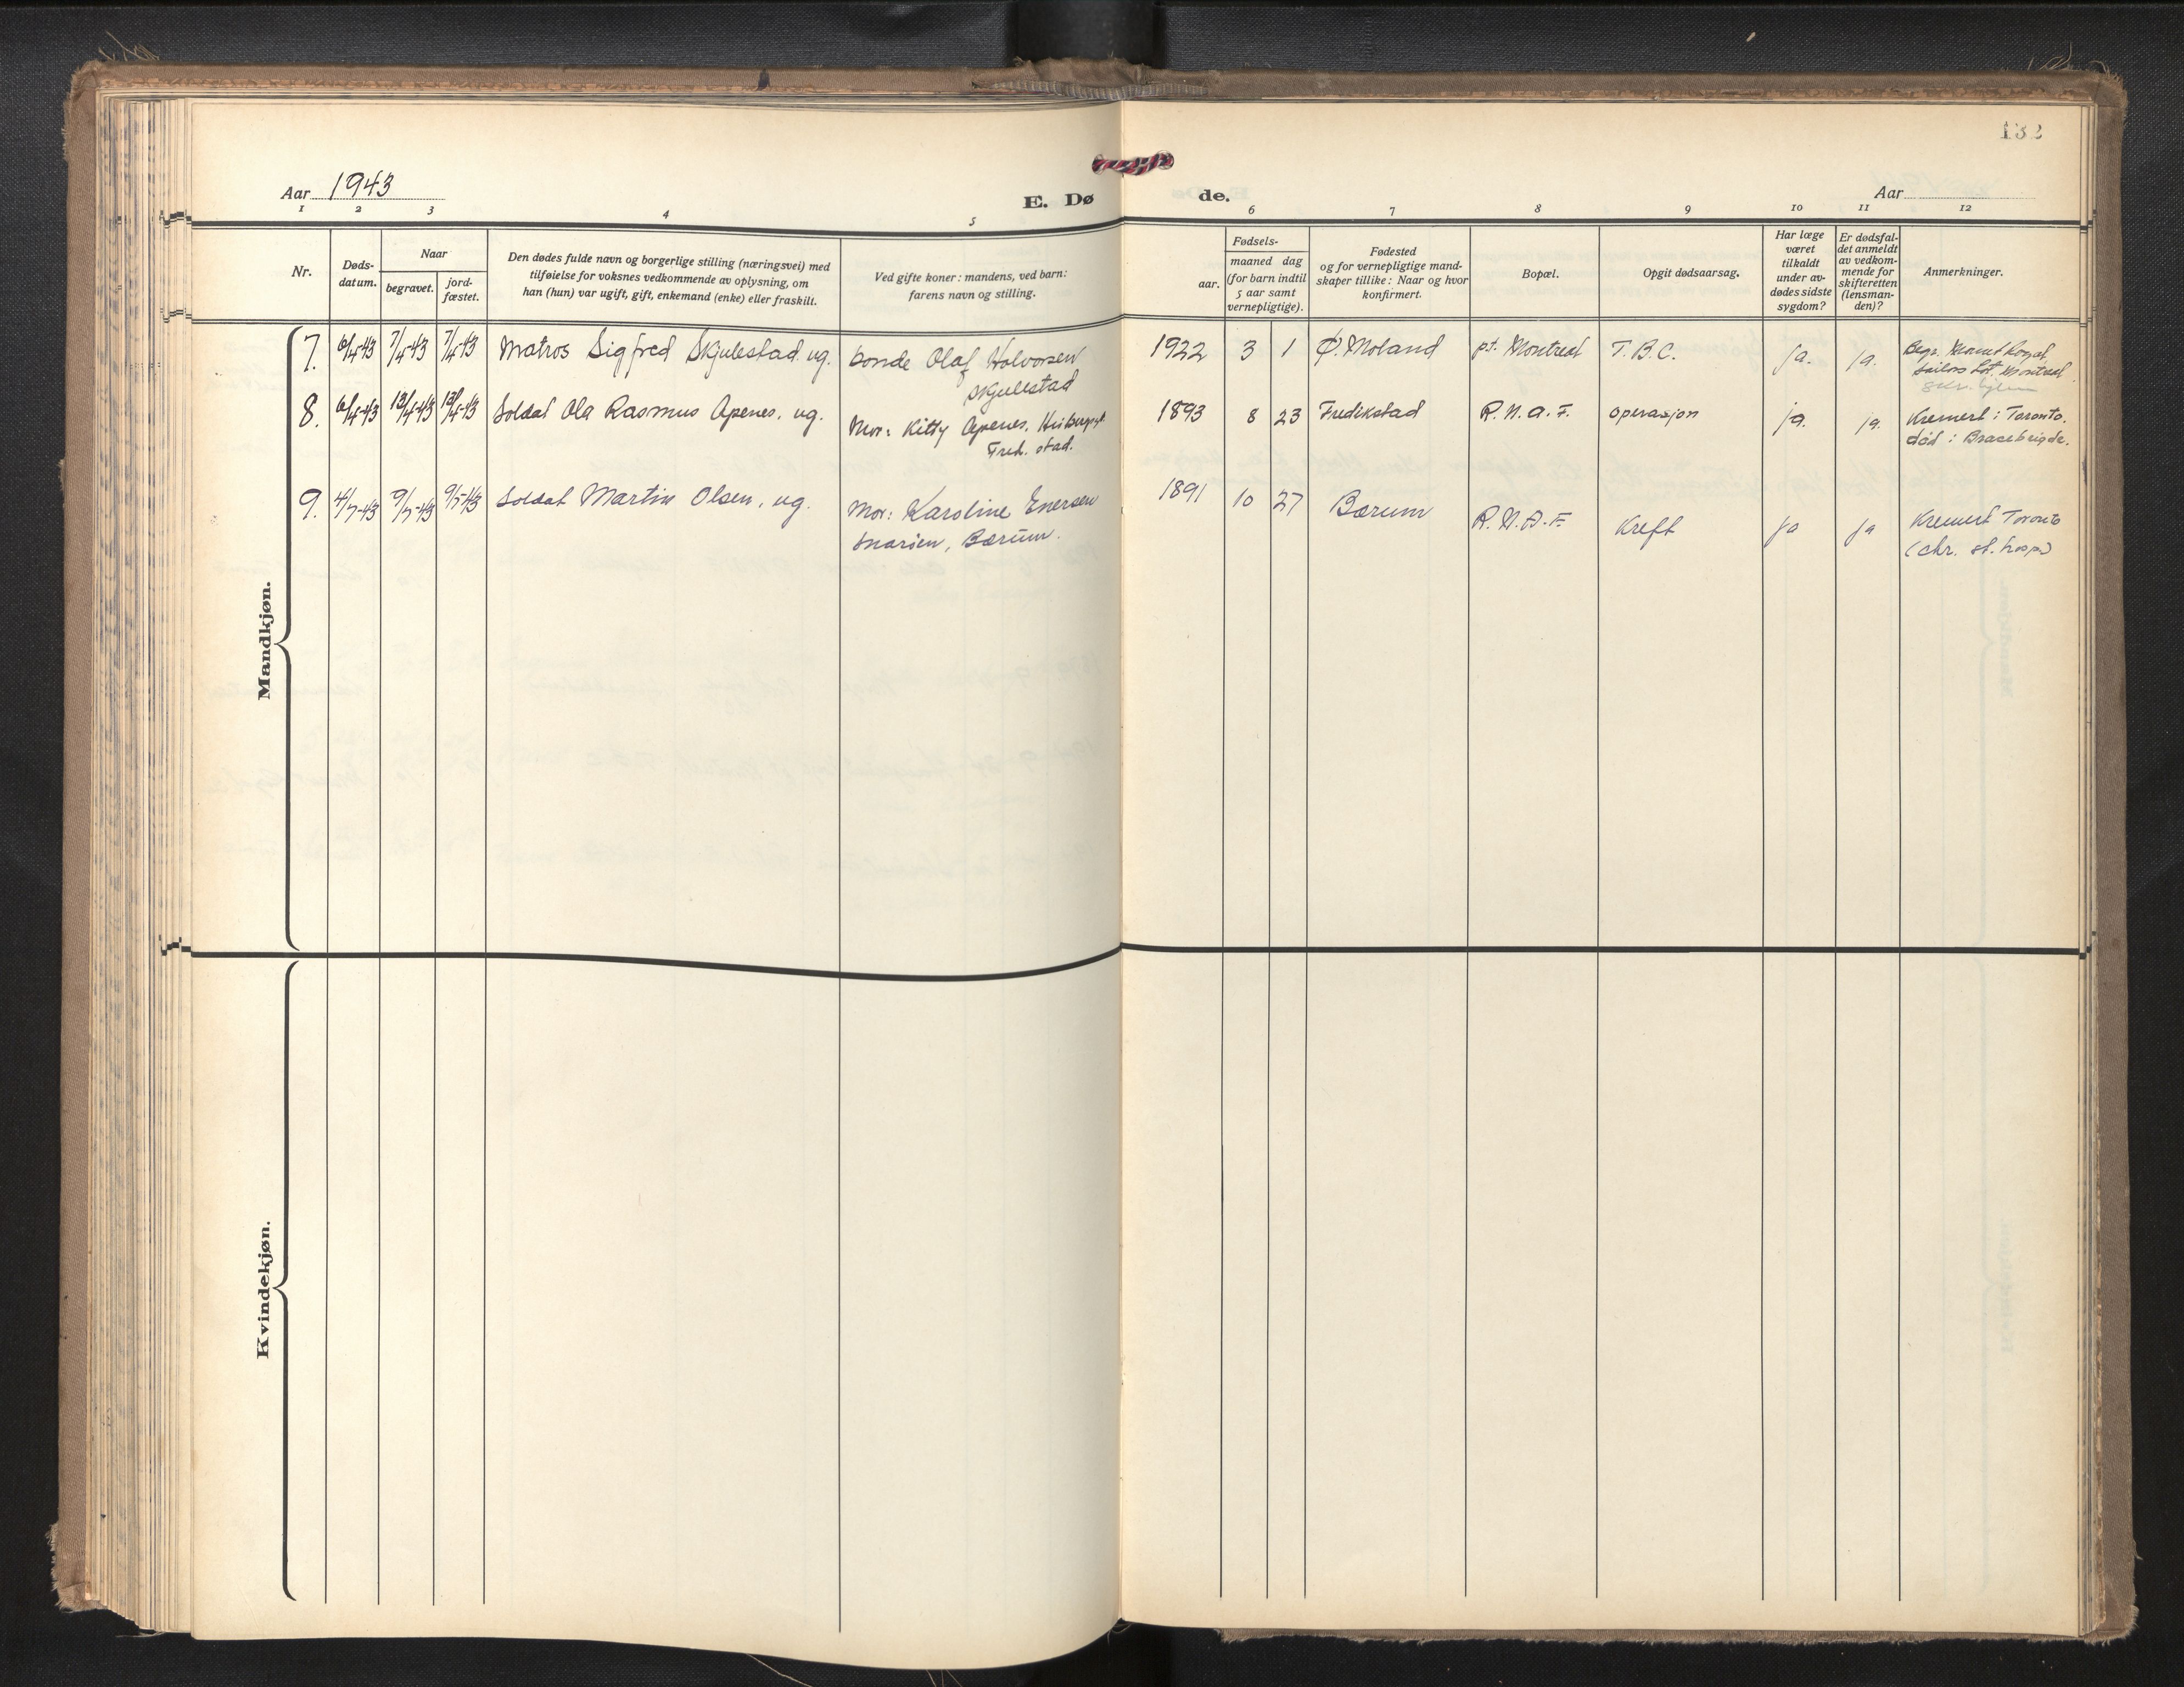 132
Aar 1943
E. Dø
de.
Aar
1 2 3 4 5
6 7 8 9 10 11 12
Nr.
Døds-
datum.
Naar
begravet.
jord-
fæstet.
Den dødes fulde navn og borgerlige stilling (næringsvei) med
tilføielse for voksnes vedkommende av oplysning, om
han (hun) var ugift, gift, enkemand (enke) eller fraskilt.
Ved gifte koner: mandens, ved barn:
farens navn og stilling.
aar.
Fødsels-
maaned dag
(for barn indtil
5 aar samt
vernepligtige).
Fødested
og for vernepligtige mand-
skaper tillike: Naar og hvor
konfirmert.
Bopæl.
Opgit dødsaarsag.
Har læge
været
tilkaldt
under av-
dødes sidste
sygdom?
Er dødsfal-
det anmeldt
av vedkom-
mende for
skifteretten
(lensman-
den)?
Anmerkninger.
Mandkjøn.
7. 6/4-43 7/4-43 7/4-43 Matros Sigfred Skjulestad. ug. bonde Olaf Holvorsen
Skjulestad
1922 3 1 Ø. Moland pt. Montreal T.B.C. ja. ja. Begr. Mount Royal,
Sailors Lot, Montreal.
8. 6/4-43 13/4-43 13/4-43 Soldat Ola Rasmus Apenes, ug. Mor: Kitty Apenes,
Fred. stad.
1893 8 23 Fredikstad R.N.A.F. operasjon ja. ja. Kremert i Toronto.
død i
9. 4/7-43 9/7-43 9/7-43 Soldat Martin Olsen, ug. Mor: Karoline Enersen
Snarøen, Bærum.
1891 10 27 Bærum R.N.A.F. Kreft ja ja Kremert Toronto
(chr. st. hosp.)
Kvindekjøn.